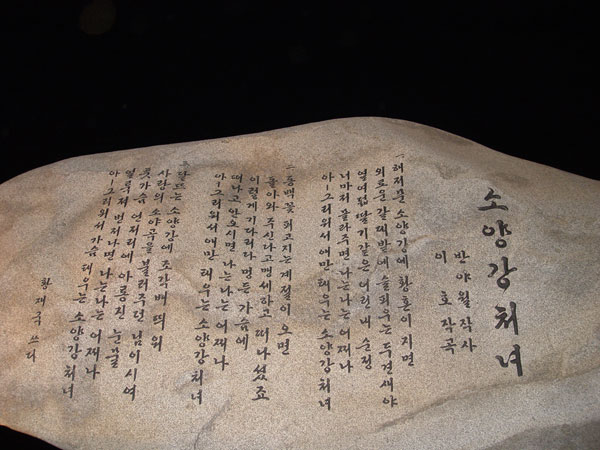 소양강처녀
반야월작사
이호작곡
一 해저문 소양강에 황혼이 지면
외로운 갈대밭에 슬피우는 두견새야
열여덟 딸기같은 어린내 순정
너마저 몰라주면 나는나는 어째나
아-그리워서 애만 태우는 소양강처녀
二 동백꽃 피고지는 계절이 오면
돌아와 주신다고 맹세하고 떠나셨죠
이렇게기다리다 멍든 가슴에
떠나고 안오시면 나는나는 어째나
아-그리워서 애만 태우는 소양강처녀
三 달뜨는 소양강에 조각배 띄워
사랑의 소야곡을 불러주던 님이시여
풋가슴 언저리에 아롱진 눈물
얼루져 번저나면 나는나는 어째나
아-그리워서 가슴 태우는 소양강처녀
황재국 쓰다